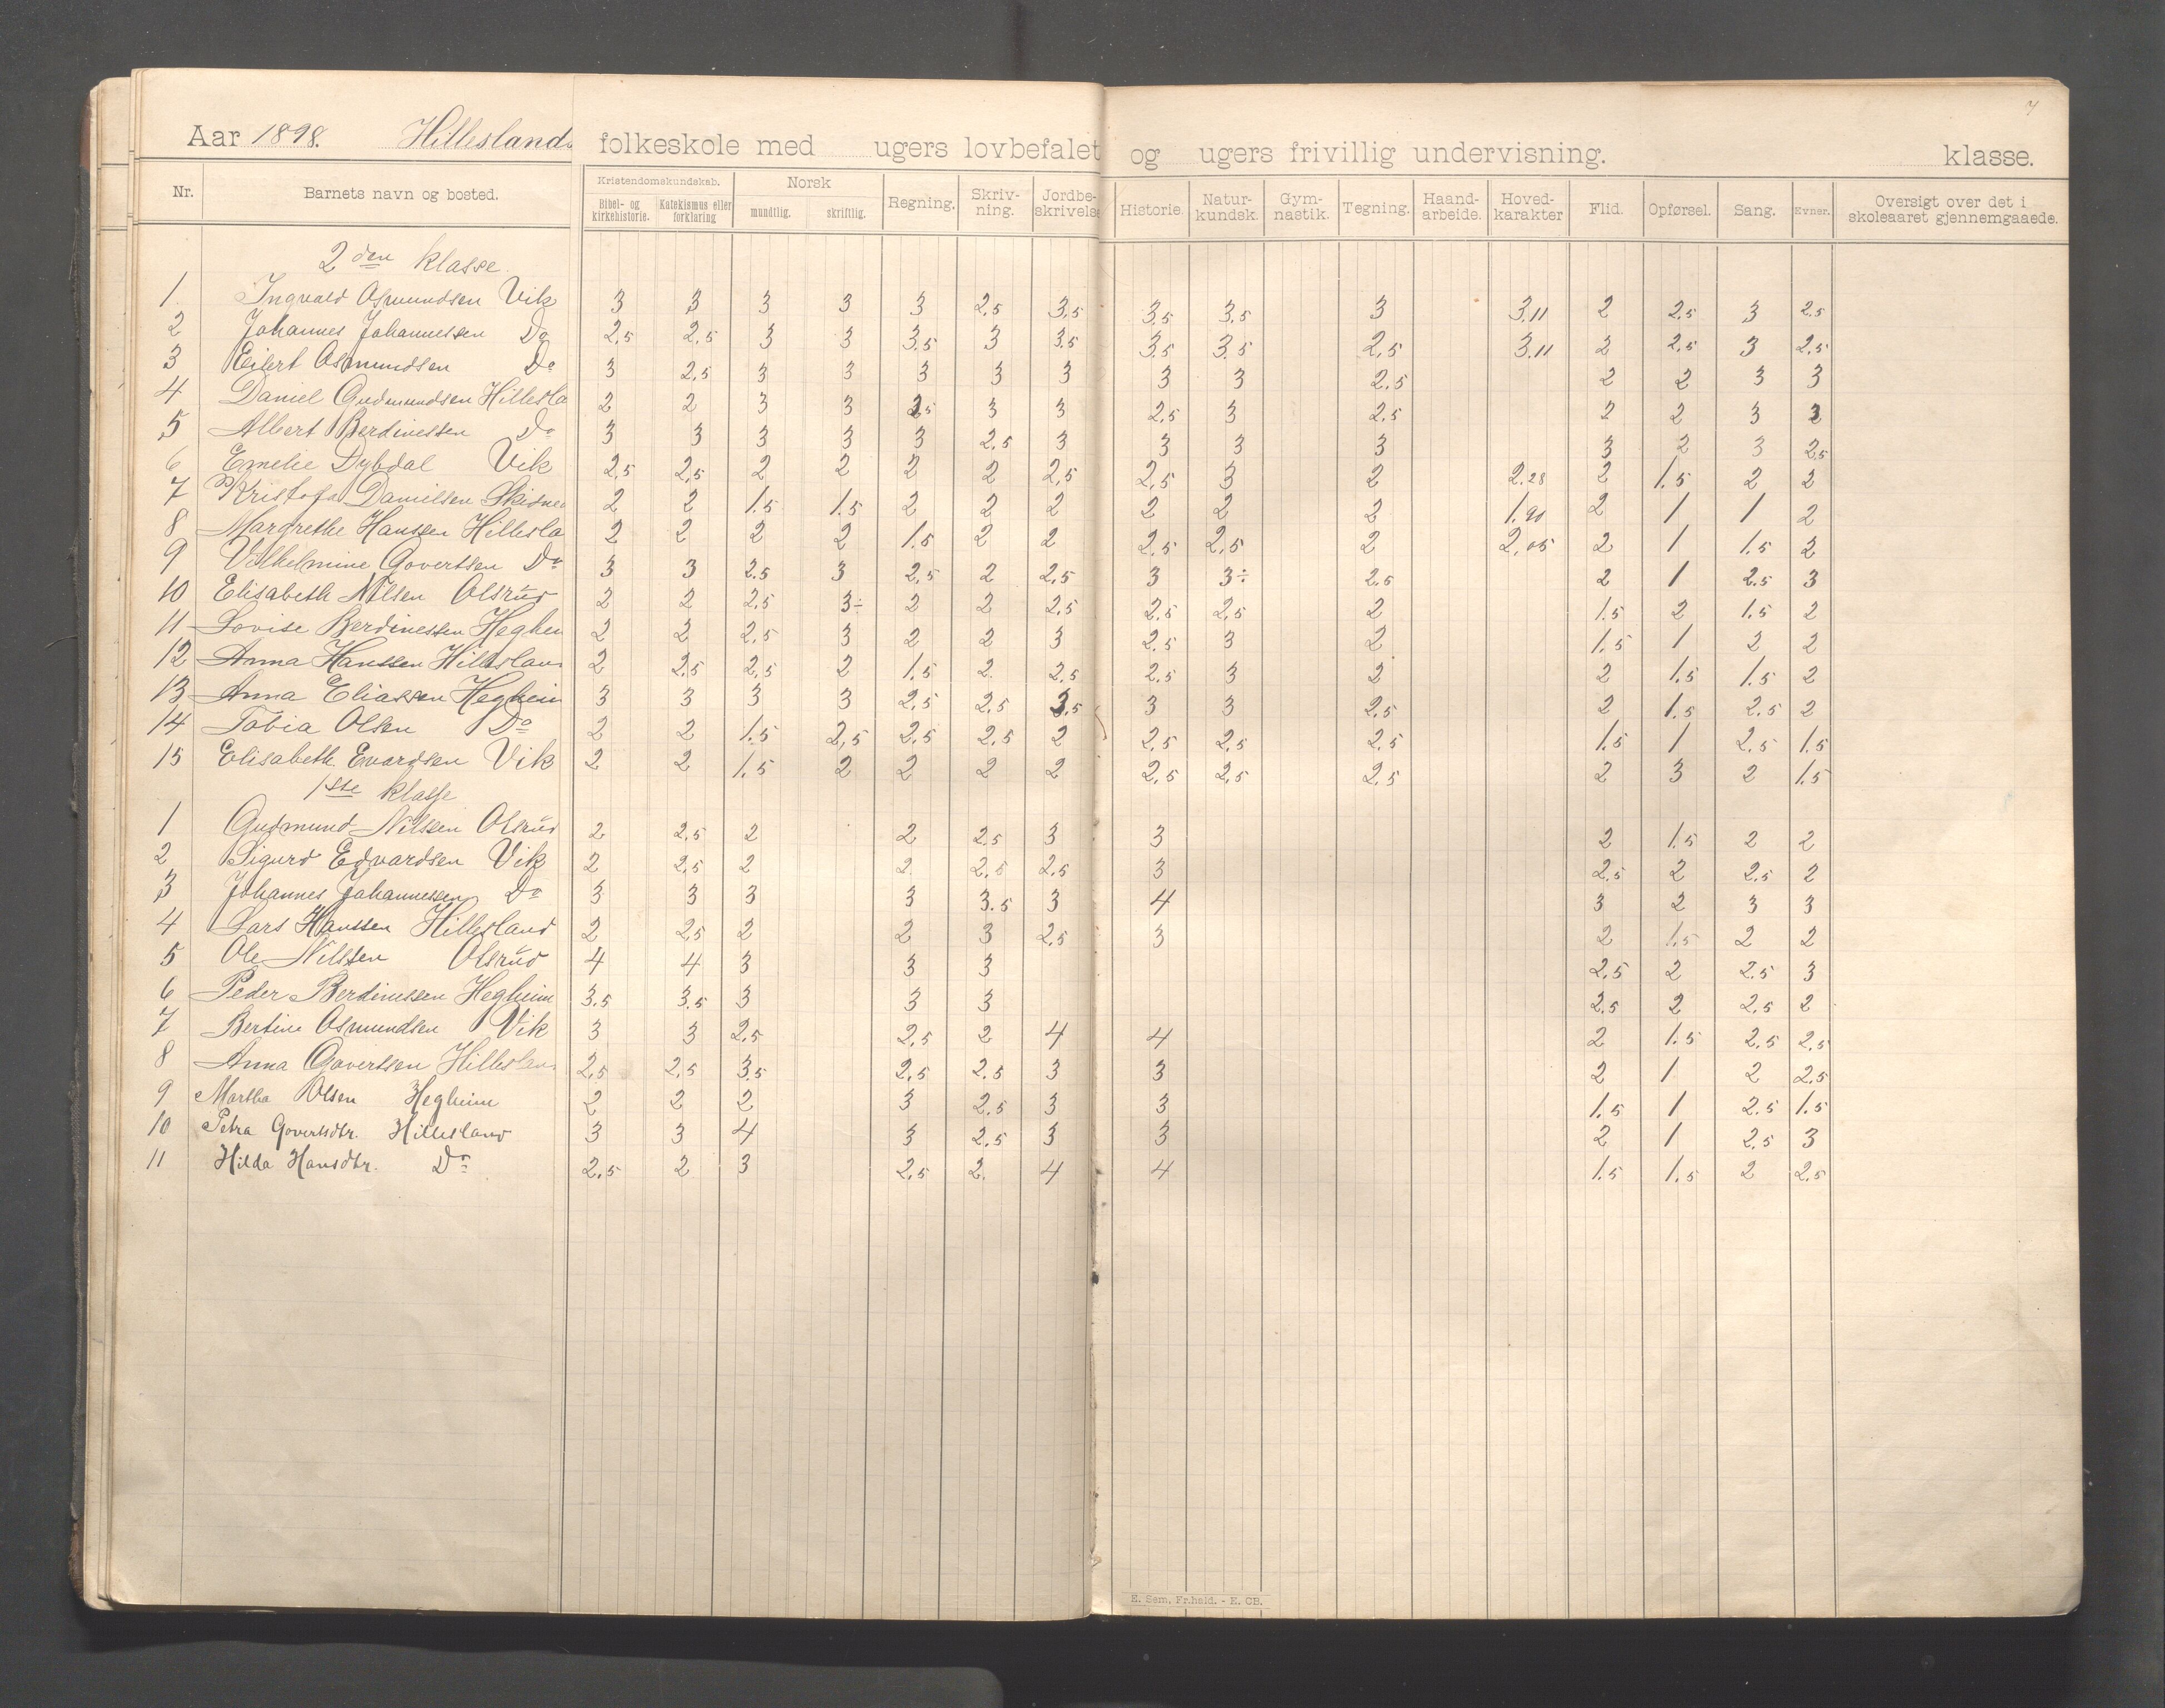 7
Aar 1898. Hilleslands folkeskole med ugers lovbefalet og ugers frivillig undervisning. klasse.
Nr. Barnets navn og bosted. Kristendomskundskab. Bibel- og kirkehistorie. Katekismus eller forklaring Norsk mundtlig. skriftlig. Regning. Skriv-ning. Jordbe-skrivelse Historie. Natur-kundsk. Gym-nastik. Tegning. Haand-arbeide. Hoved-karakter Flid. Opførsel. Sang. Evner. Oversigt over det i skoleaaret gjennemgaaede.
2den klasse
1 Ingvald Osmundsen Vik 3 3 3 3 3 2.5 3.5 3.5 3.5 3 3.11 2 2.5 3 2.5
2 Johannes Johannessen Do 2,5 2,5 3 3 3.5 3 3.5 3.5 3.5 2,5 3.11 2 2.5 3 2,5
3 Eilert Osmundsen Do 3 2,5 3 3 3 3 3 3 3 2.5 2 2 3 3
4 Daniel Gudmundsen Hillesla 2 2 3 3 2,5 3 3 2,5 3 2.5 2 2 3 2
5 Albert Berdinessen Do 3 3 3 3 3 2,5 3 3 3 3 3 2 3 2,5
6 Emelie Dybdal Vik 2,5 2,5 2 2 2 2 2,5 2,5 3 2 2.28 2 1.5 2 2
7 Kristofa Danielsen 2 2 1.5 1.5 2 2 2 2 2 2 1.90 2 1 1 2
8 Margrethe Hanssen Hillesla 2 2 2 2 1.5 2 2 2.5 2,5 2 2,05 2 1 1.5 2
9 Vilhelmine Govertsen Do 3 3 2.5 3 2,5 2 2,5 3 3÷ 2.5 2 1 2.5 3
10 Elisabeth Nilsen Olsrud 2 2 2,5 3÷ 2 2 2,5 2,5 2,5 2 1.5 2 1.5 2
11 Lovise Berdinessen Heghei 2 2 2,5 3 2 2 3 2.5 3 2 1.5 1 2 2
12 Anna Hanssen Hilleslan 2 2,5 2,5 2 1.5 2 2,5 2.5 3 2 2 1.5 1.5 2
13 Anna Eliassen Hegheim 3 3 3 3 2,5 2,5 3,5 3 3 2,5 2 1.5 2.5 2
14 Tobia Olsen Do 2 2 1.5 2,5 2,5 2,5 2 2,5 2,5 2,5 1.5 1 2,5 1.5
15 Elisabeth Evardsen Vik 2 2 1.5 2 2 2 2 2,5 2,5 2,5 2 3 2 1.5
1ste klasse
1 Gudmund Nilssen Olsrud 2 2,5 2 2 2.5 3 3 2 1.5 2 2
2 Sigurd Edvardsen Vik 2 2,5 2 2 2,5 2,5 3 2.5 2 2.5 2
3 Johannes Johannessen Do 3 3 3 3 3.5 3 4 3 2 3 3
4 Lars Hanssen Hillesland 2 2,5 2 2 3 2,5 3 2 1.5 2 2
5 Ole Nilssen Olsrud 4 4 3 3 3 2.5 2 2.5 3
6 Peder Berdinessen Hegheim 3.5 3.5 3 3 3 2.5 2 2,5 2
7 Bertine Osmundsen Vik 3 3 2.5 2,5 2 4 4 2 1.5 2.5 2,5
8 Anna Govertsen Hilleslan 2,5 2,5 3.5 2,5 2.5 3 3 2 1 2 2,5
9 Martha Olsen Hegheim 2 2 2 3 2.5 3 3 1.5 1 2.5 1.5
10 Petra Govertsdtr. Hillesland 3 3 4 3 2.5 3 3 2 1 2.5 3
11 Hilda Hansdtr. Do 2,5 2 3 2,5 2 4 4 1.5 1.5 2 2,5
E. Sem, Fr.hald. - E. CB.